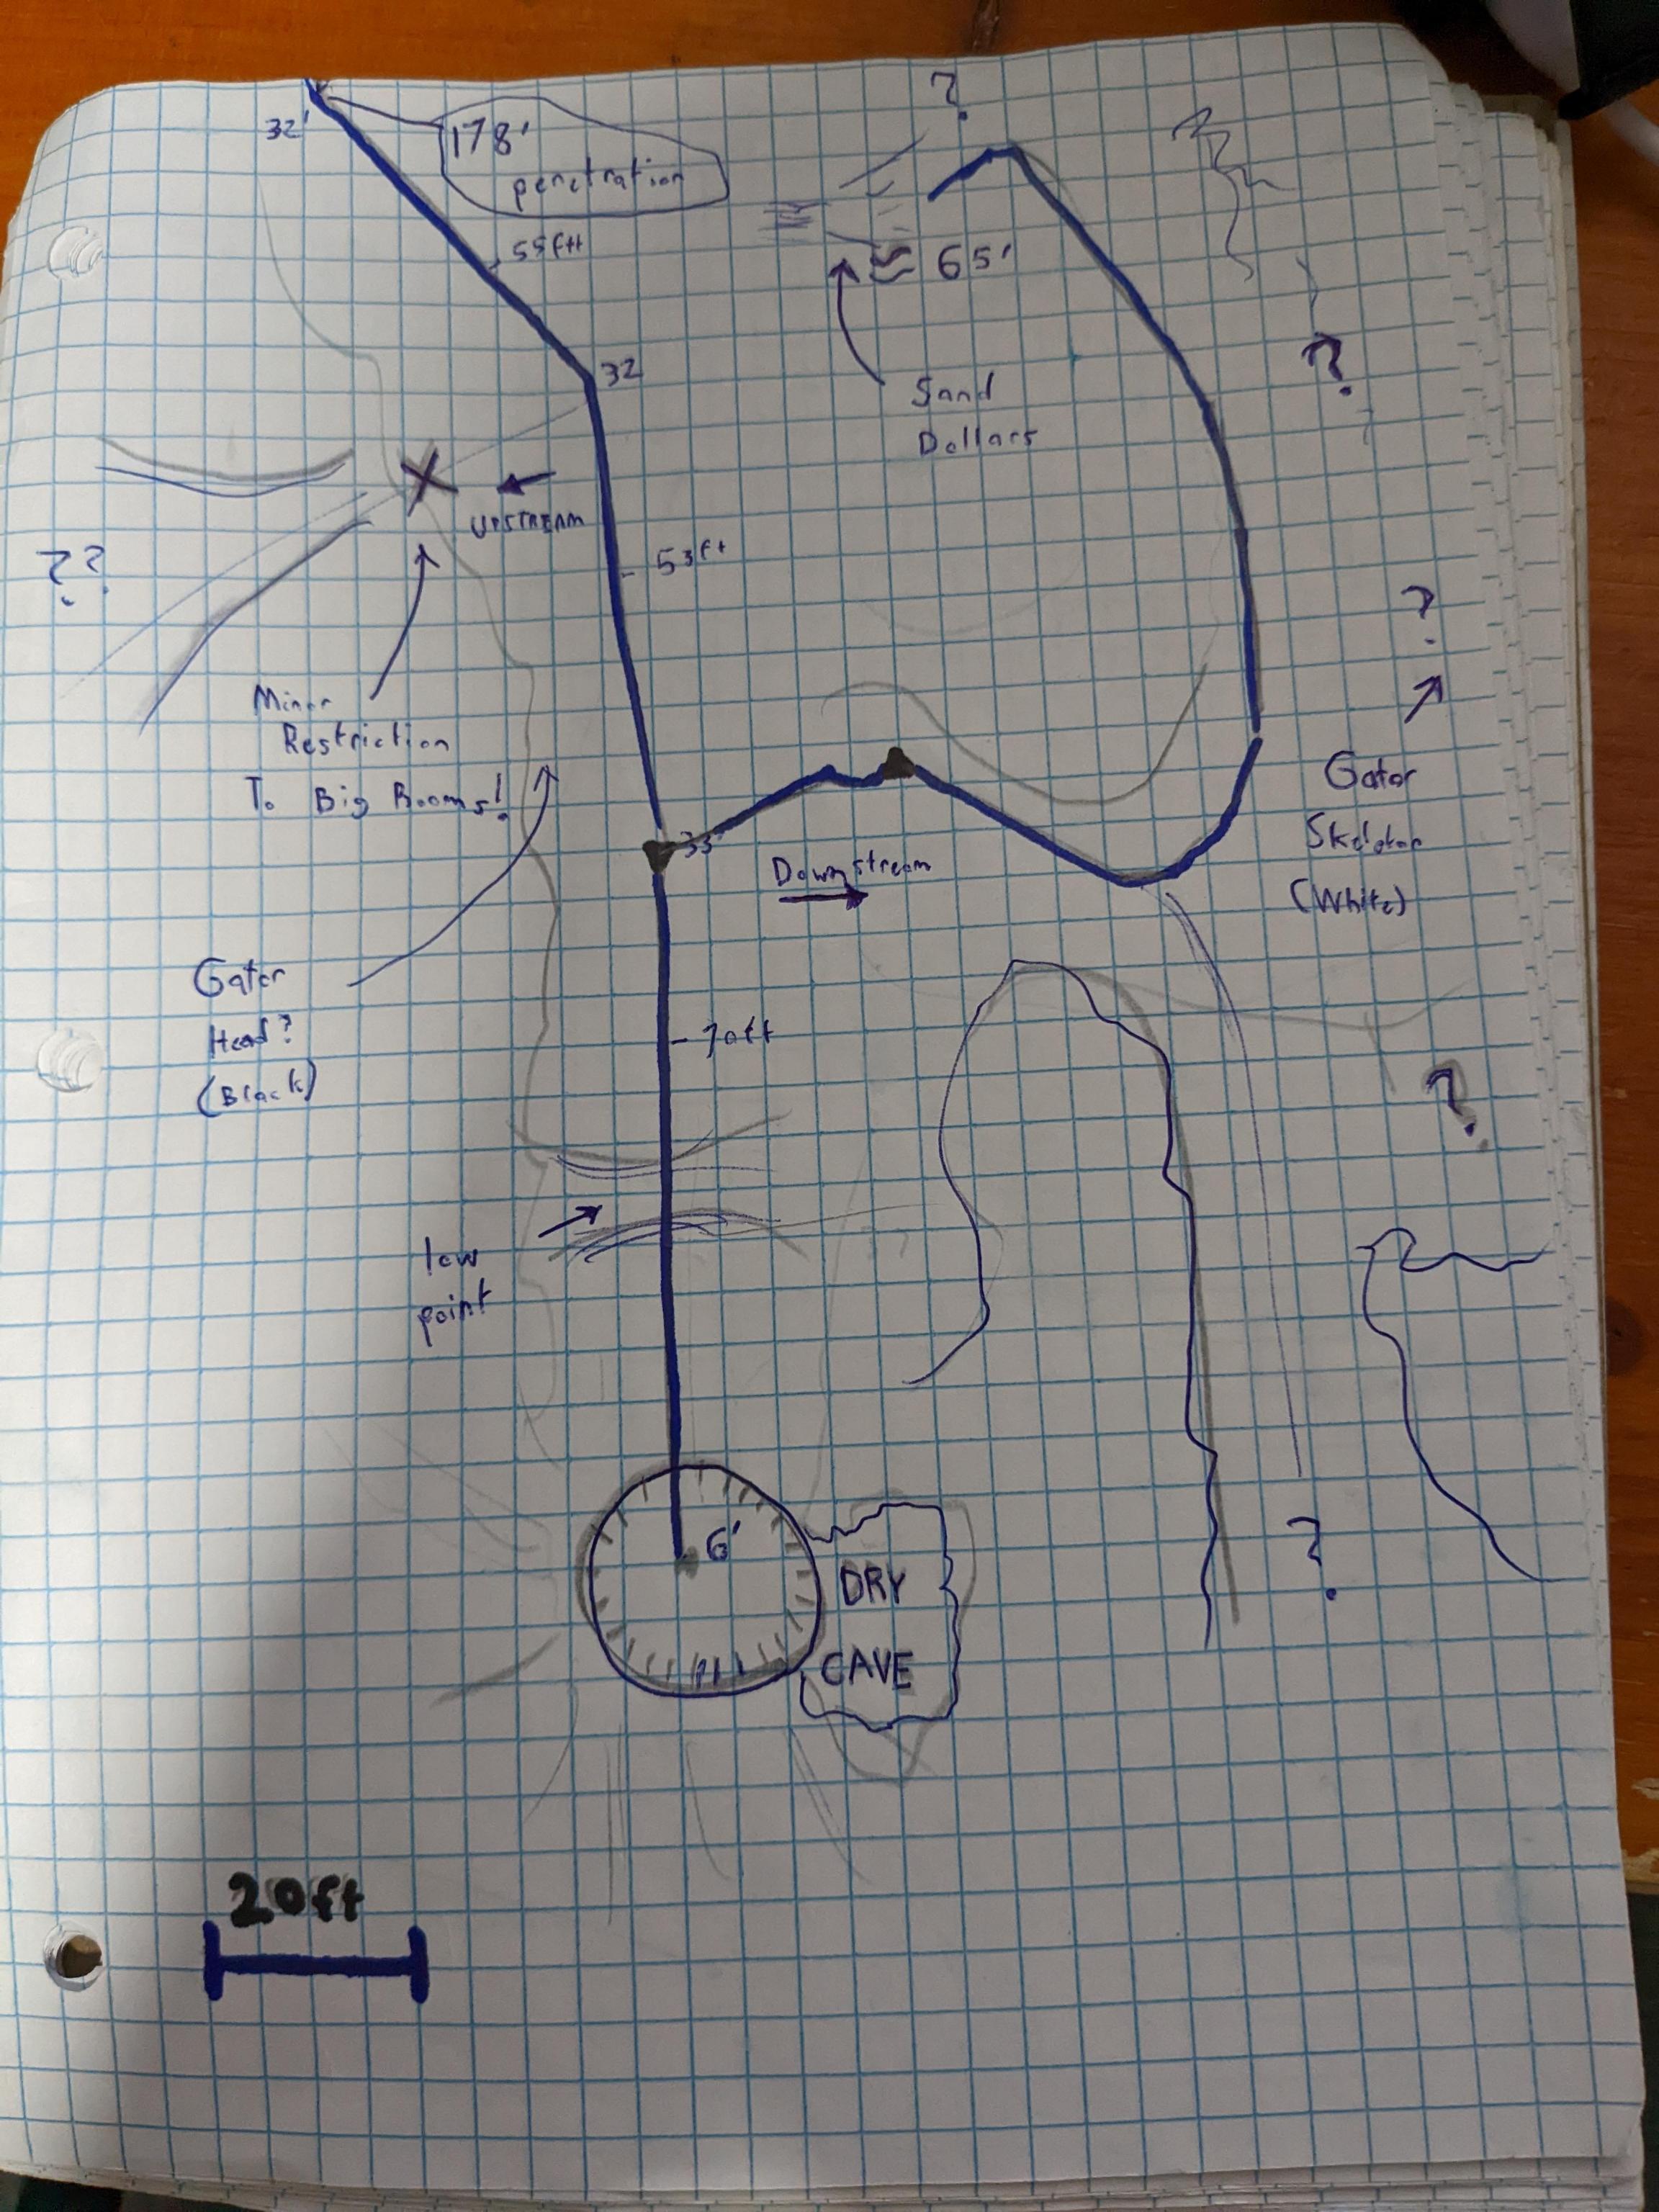 ?
32'
178'
penetration
55ft
≈ 65'
Sand
Dollars
?
32
X
UPSTREAM
53ft
??
?
Minor
Restriction
To Big Rooms!
Gator
Skeleton
(White)
33'
Downstream
Gator
Head?
(Black)
70ft
?
low
point
6'
DRY
CAVE
?
20ft